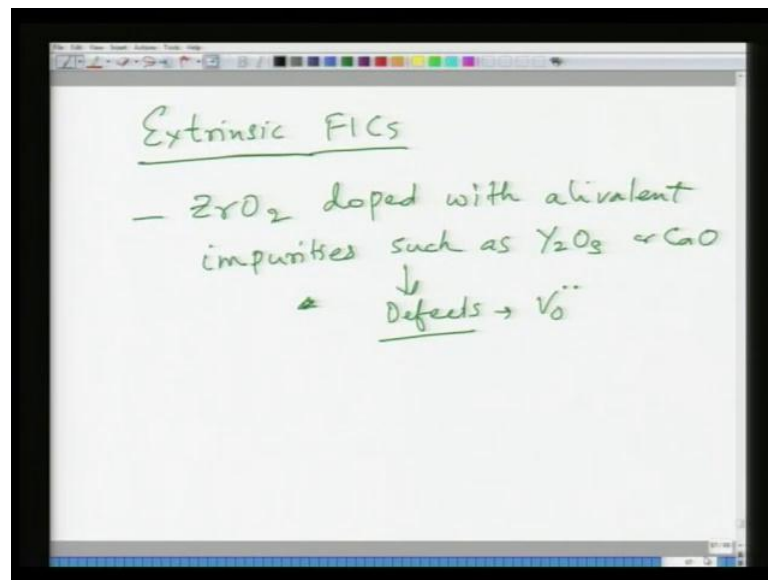 File Edit View Insert Actions Tools Help
Extrinsic FICs
— ZrO₂ doped with alivalent
impurities such as Y₂O₃ or CaO
↓
Defects → V₀¨